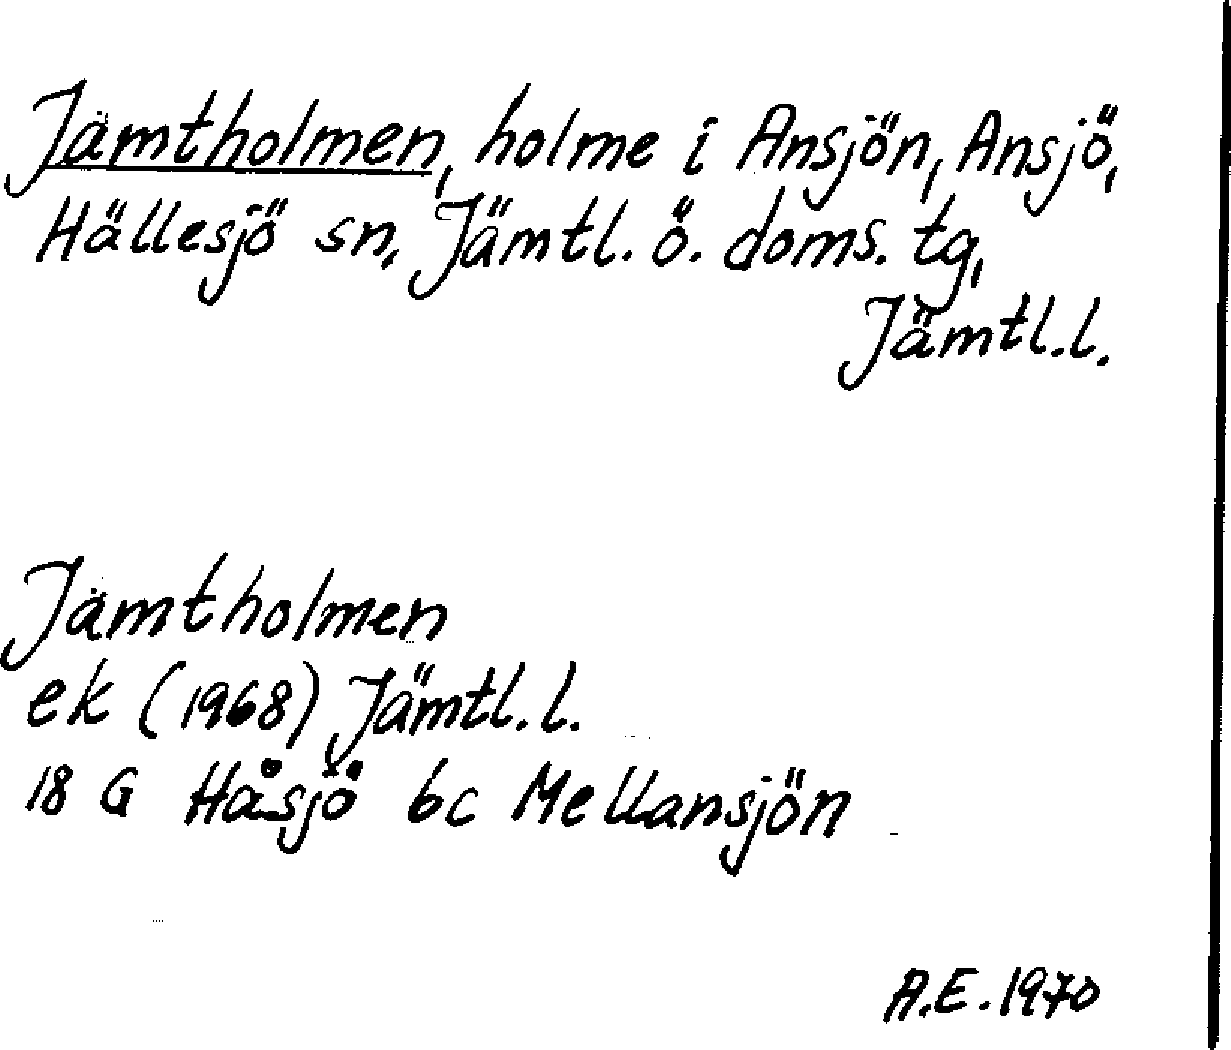 Jämtholmen, holme i Ansjön, Ansjö,
Hällesjö sn, Jämtl. ö. doms. tg,
Jämtl.l.
Jämtholmen
ek (1968) Jämtl.l.
18 G Håsjö 6c Mellansjön
A.E. 1970